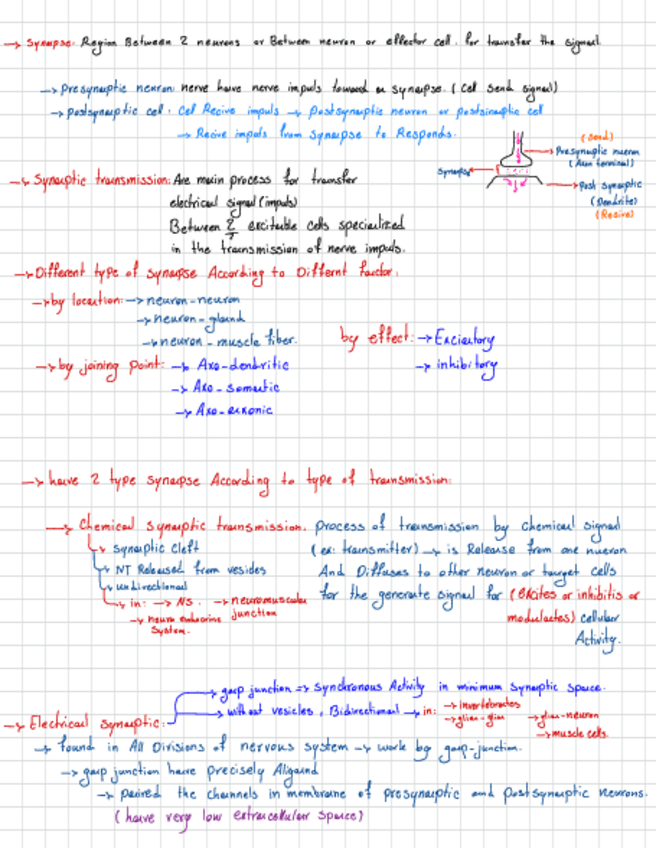 → Synapse: Region Between 2 neurons or Between neuron or effector cell. for transfer the signal.
→ presynaptic neuron: nerve have nerve impuls toward a synapse. (Cel send signal)
→ postsynaptic cel: Cel Recive impuls → Postsynaptic neuron or postsinaptic cel
→ Recive impuls from Synapse to Responds.
(Send)
→ Presynaptic nueron
(Axon terminal)
Synapse
→ Post synaptic
(Dendrite)
(Recive)
→ Synaptic transmission: Are main process for transfer
electrical signal (impuls)
Between 2 excitable cells specialized
in the transmission of nerve impuls.
→ Different type of synapse According to Differnt factor.
→ by location: → neuron-neuron
→ neuron-gland
→ neuron-muscle fiber.
by effect: → Exciatory
→ inhibitory
→ by joining point: → Axo-dendritic
→ Axo-somatic
→ Axo-axonic
→ have 2 type synapse According to type of transmission:
→ Chemical synaptic transmission. Process of transmission by Chemical signal
→ synaptic cleft
(ex: transmitter) → is Release from one nueron
→ NT Released from vesides
And Diffuses to other neuron or target cells
→ undirectional
for the generate signal for (exites or inhibitis or
modulactes) cellular
Activity.
→ in: → NS. → neuromuscular
junction
→ neuro endocrine
System.
→ gap junction => Synchronous Activity in minimum synaptic space.
→ Electrical synaptic:
→ without vesicles, Bidirectional → in: → invertebrates
→ glian-glian → glian-neuron
→ muscle cells.
→ found in All Divisions of nervous system → work by gap-junction.
→ gap junction have precisely Aligand
→ paired the channels in membrane of presynaptic and postsynaptic neurons.
(have very low extracellular space)